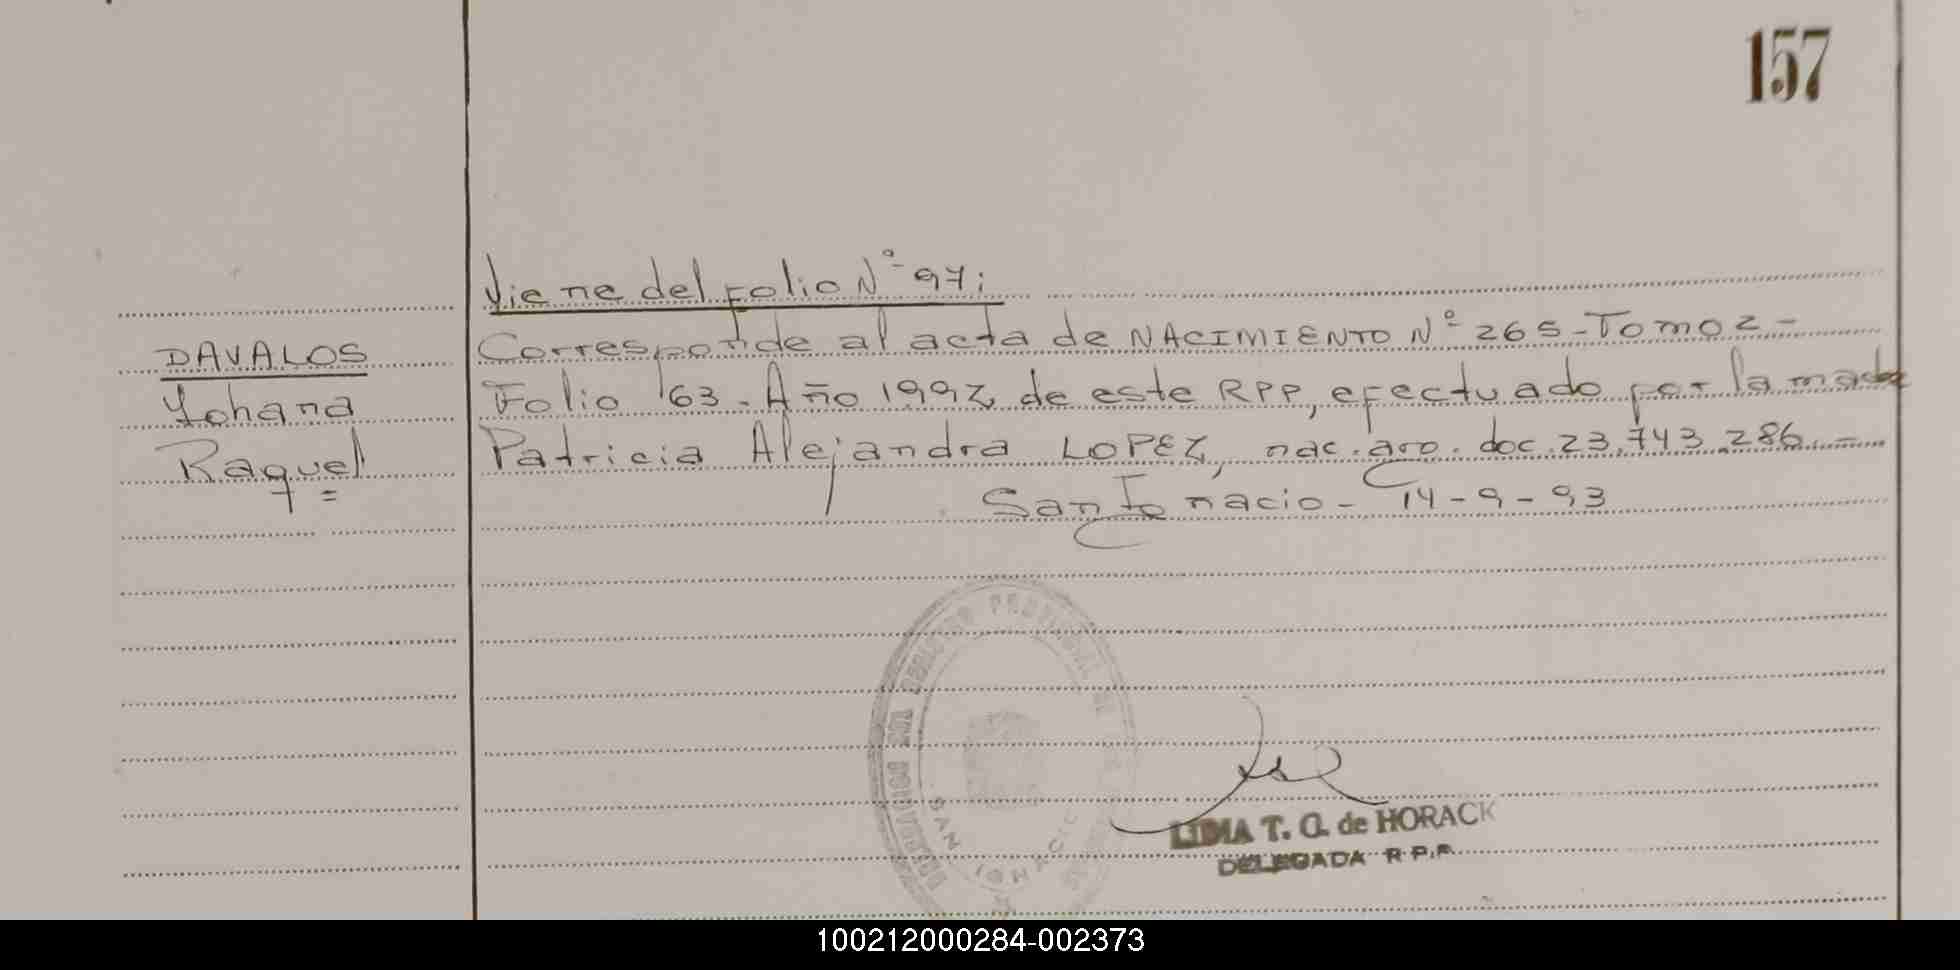 157
Viene del folio Nº 97:
DAVALOS
Yohana
Raquel
Corresponde al acta de NACIMIENTO Nº 265 - Tomo 2 -
Folio 163. Año 1992, de este RPP, efectuado por la madre
Patricia Alejandra LOPEZ, nac. arg. doc. 23.743.286. -
San Ignacio - 14-9-93
DIRECCION PROVINCIAL DE
SAN IGNACIO
LIDIA T. G. de HORACK
DELEGADA R.P.P.
100212000284-002373